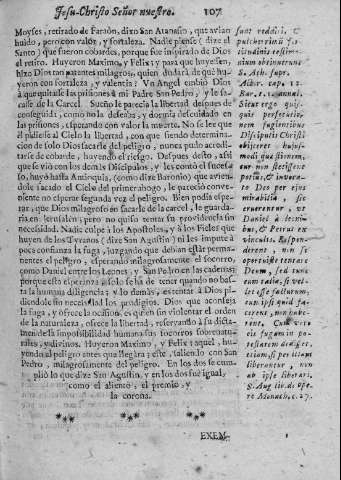 Jesu-Christo Señor nuestro. 107
Moyses, retirado de Faraòn, dixo San Atanasio, que avian
huido, pero con valor, y fortaleza. Nadie piense (dize el
Santo) que fueron cobardes, porque fue inspirado de Dios
el retiro. Huyeron Maximo, y Felix; y para que huyessen,
hizo Dios tan patentes milagros, quien dudarà, de que hu-
yeron con fortaleza, y valentia? Un Angel embiò Dios
à quitar las prisiones à mi Padre San Pedro, y le sa-
caste de la Carcel. Sueño le parecia la libertad despues de
conseguida, como no la deseava, y dormia descuidado en
las prisiones, esperando con valor la muerte. No se lee que
él pidiesse al Cielo la libertad, con que siendo determina-
cion de solo Dios sacarle del peligro, nunca pudo acredi-
tarse de cobarde, huyendo el riesgo. Despues desto, assi
que se viò con los demàs Discipulos, y les contò el suces-
so, huyò hasta Antioquia, (como dize Baronio) que avien-
dole sacado el Cielo del primer ahogo, le pareciò conve-
niente no esperar segunda vez el peligro. Bien podia espe-
rar, que Dios milagroso en sacarle de la carcel, le guarda-
ria en Jerusalèn; pero no quiso tentar su providencia sin
necessidad. Nadie culpe à los Apostoles, y à los Fieles que
huyen de los Tyranos (dize San Agustin) ni les impute à
poca confiança la fuga, juzgando que debian estar perma-
nentes al peligro, esperando milagrosamente el socorro,
como Daniel entre los Leones, y San Pedro en las cadenas;
porque esta esperança, solo se ha de tener quando no bas-
ta la humana diligencia; y lo demàs, es tentar à Dios pi-
diendole sin necessidad los prodigios. Dios que aconseja
la fuga, y ofrece la ocasion, es quien sin violentar el orden
de la naturaleza, ofrece la libertad, reservando
de la impossibilidad humana sus socorros sobrenatu-
rales, y divinos. Huyeron Maximo, y Felix: aquel, hu-
yendo al peligro antes que llegàra; este, saliendo con San
Pedro, milagrosamente del peligro. En los dos se cum-
pliò lo que dize San Agustin, y en los dos fuè igual,
como el aliento, el premio, y
la corona.
EXEM-
sunt reddiri. &
pulcherrimi for-
titudinis testimo-
nium obtinuerunt
S. Ath. supr.
Actor. cap. 12.
Sicut ergo quis-
quis persecutio-
nem fugientibus
Discipulis Christi
obijceret hujus-
modi quæstionem,
cur non stetissent
portus, & invoca-
to Deo per ejus
mirabilia, sic
eruerentur, ut
Daniel à leoni-
bus, & Petrus ex
vinculis. Respon-
derent, non se
oportuisse tentare
Deum, sed tunc
eum talia, si vel-
let esse facturum,
cum ipsi quid fa-
cerent, non habe-
rent. Cum vero
eis fugam in po-
testatem dedisset,
etiam, si per illam
liberantur, non
ab ipso liberari.
S. Aug. lib. de ope-
re Monach. c. 27.